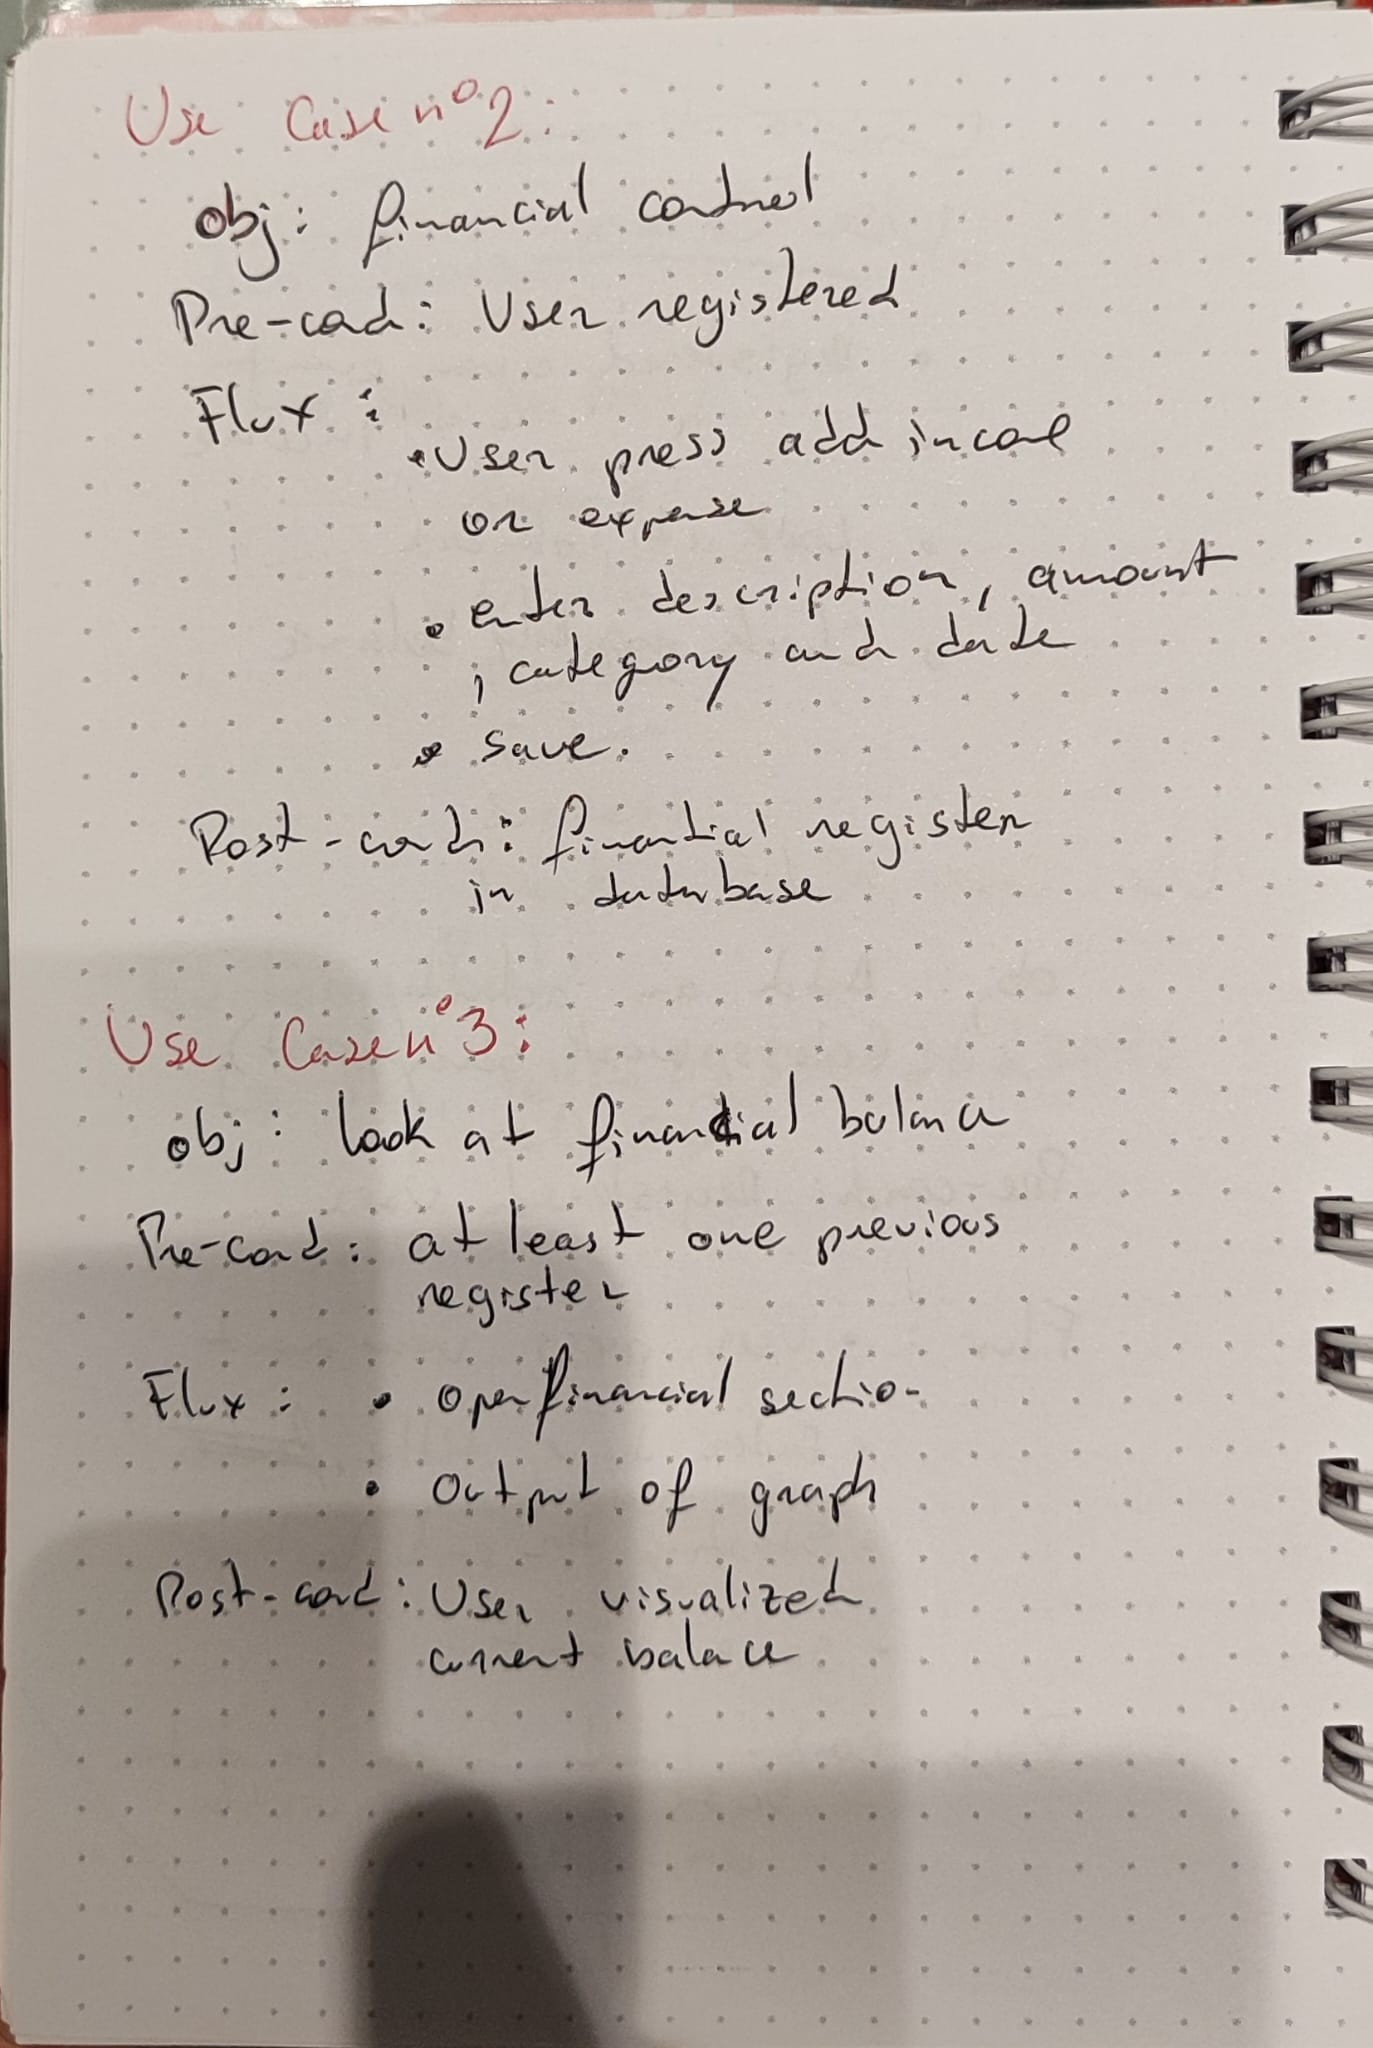 Use Case nº2:
obj: financial control
Pre-cond: User registered
Flux:
• User press add income
or expense
• enter description, amount
, category and date
• save.
Post-cond: finantial register
in database
Use Case nº3:
obj: look at financial balance
Pre-cond: at least one previous
register
Flux: • Open financial section
• Output of graph
Post-cond: User visualized
current balance